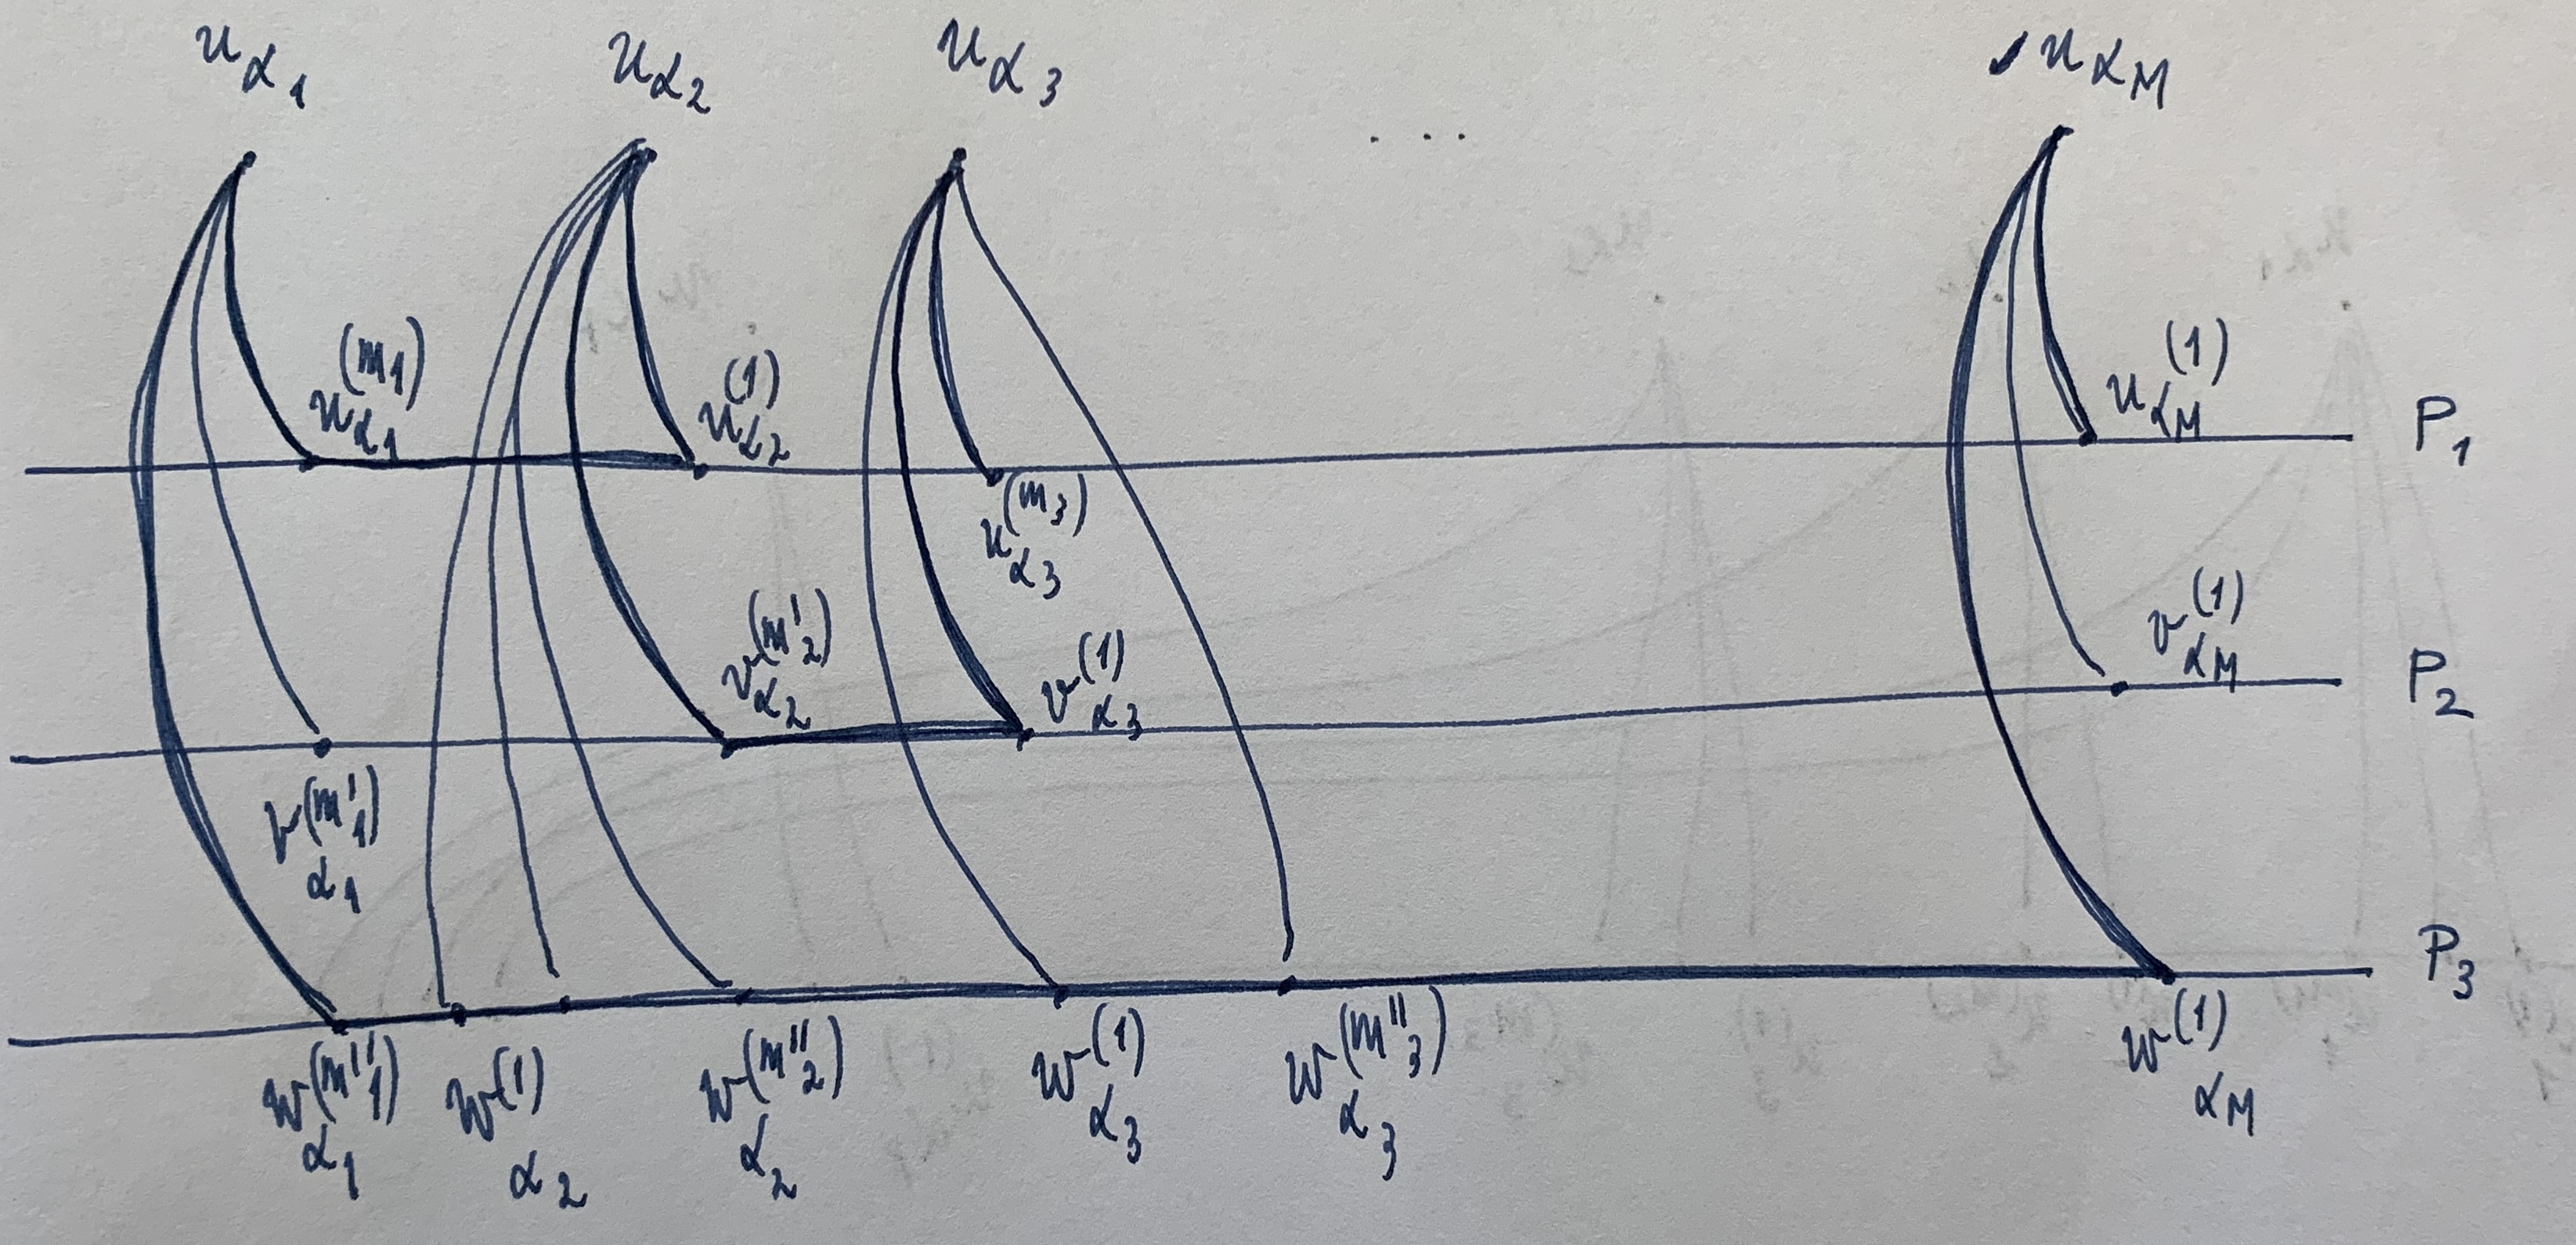 u_{α_1} u_{α_2} u_{α_3} .... u_{α_M}
u_{α_1}^{(m_1)} u_{α_2}^{(1)} u_{α_M}^{(1)} P_1
u_{α_3}^{(m_3)}
v_{α_2}^{(m'_2)} v_{α_3}^{(1)} v_{α_M}^{(1)} P_2
v_{α_1}^{(m'_1)}
P_3
w_{α_1}^{(m''_1)} w_{α_2}^{(1)} w_{α_2}^{(m''_2)} w_{α_3}^{(1)} w_{α_3}^{(m''_3)} w_{α_M}^{(1)}